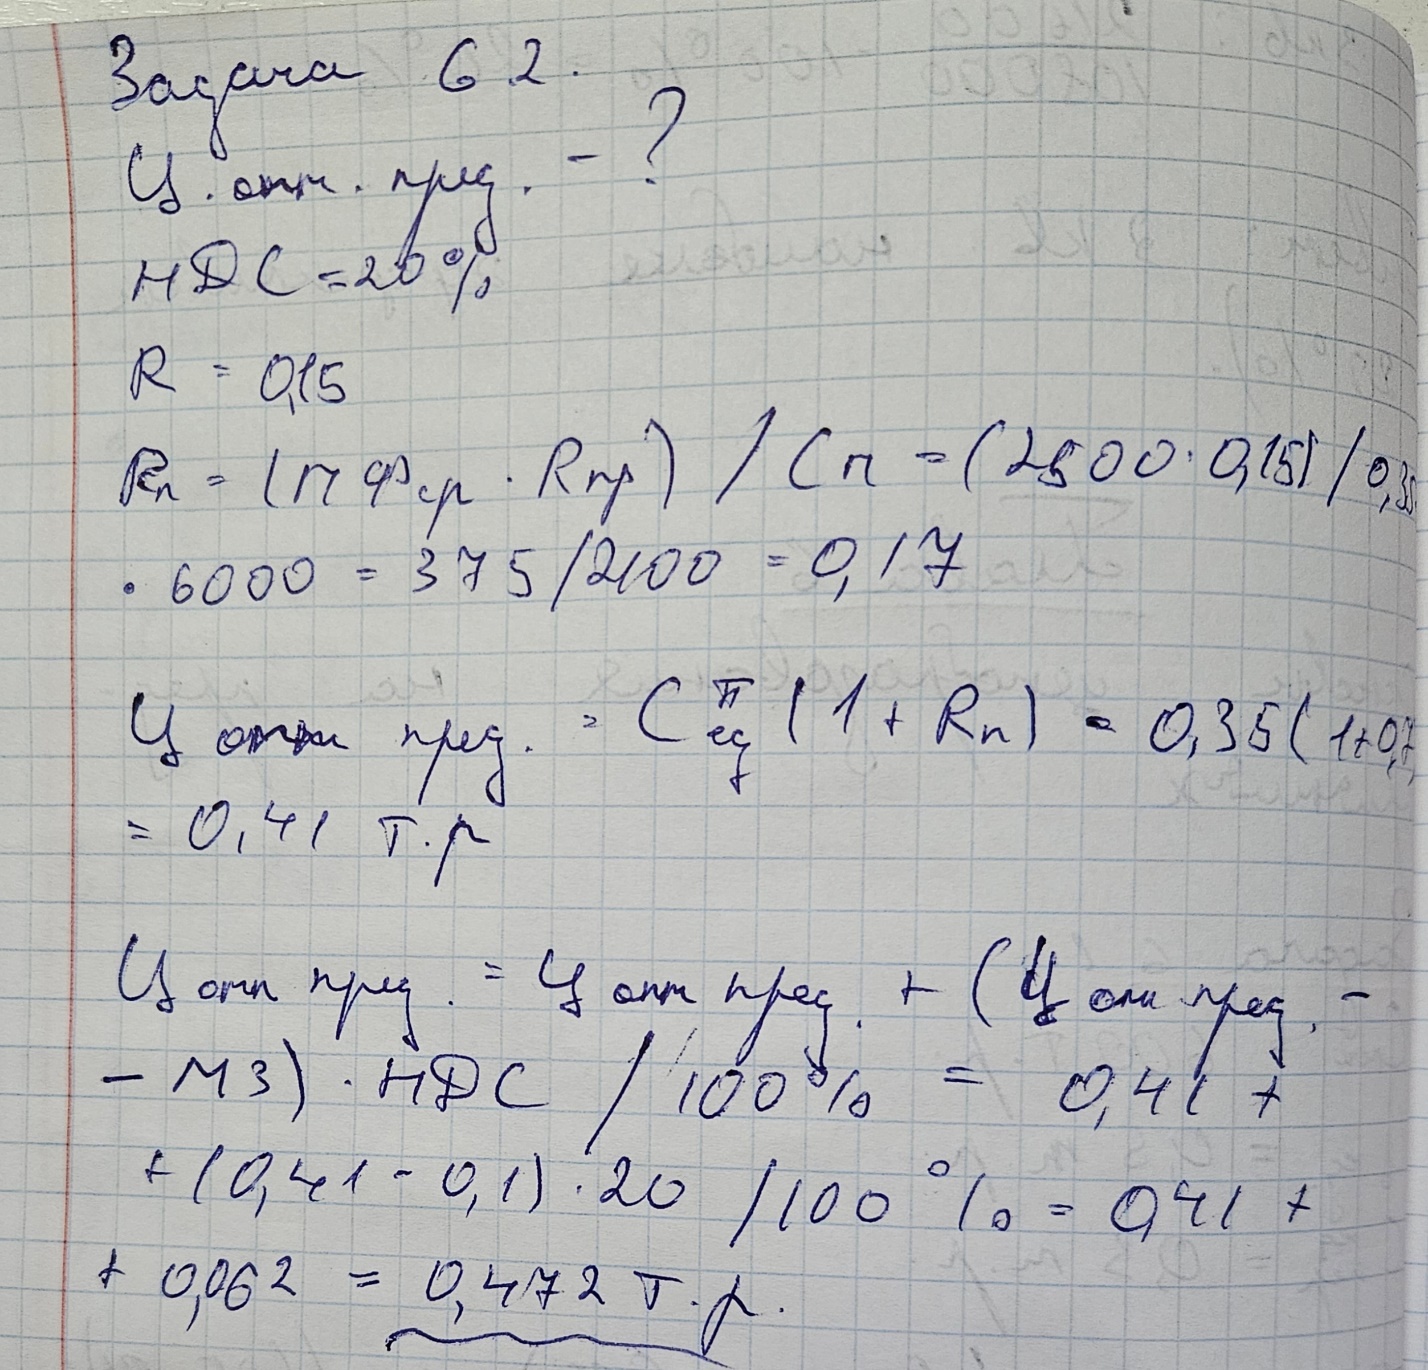 Задача 6.2.
Ц. отп. пред. - ?
НДС = 20%
R = 0,15
Rп = (ПФср · Rпр) / Сп = (2500 · 0,15) / 0,35
· 6000 = 375/2100 = 0,17
Ц отп пред. = С п ед (1 + Rп) = 0,35 (1+0,7
= 0,41 т.р
Ц отп пред. = Ц отп пред. + (Ц отп пред. -
- МЗ) · НДС / 100% = 0,41 +
+ (0,41 - 0,1) · 20 / 100% = 0,41 +
+ 0,062 = 0,472 т.р.